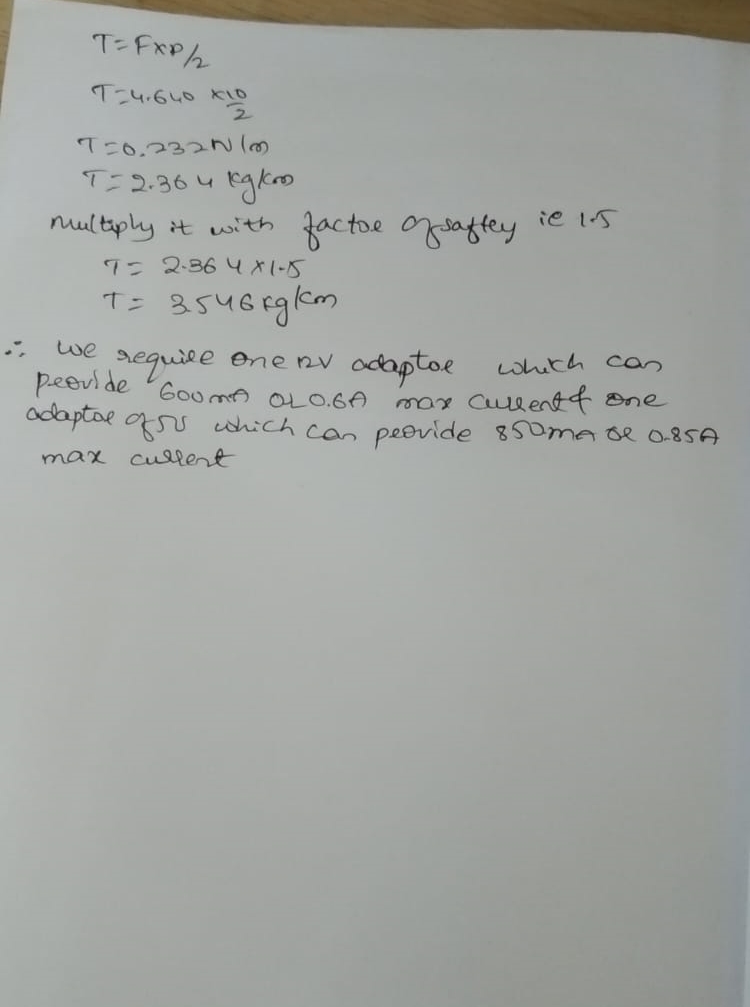 T=F×D/2
T=4.640 ×10/2
T=0.232N/m
T=2.364 kg/cm
multiply it with factor of saftey ie 1.5
T= 2.364×1.5
T= 3.546 kg/cm
∴ we require one 12V adaptor which can
provide 600mA or 0.6A max current & one
adaptor of 5V which can provide 850mA or 0.85A
max current